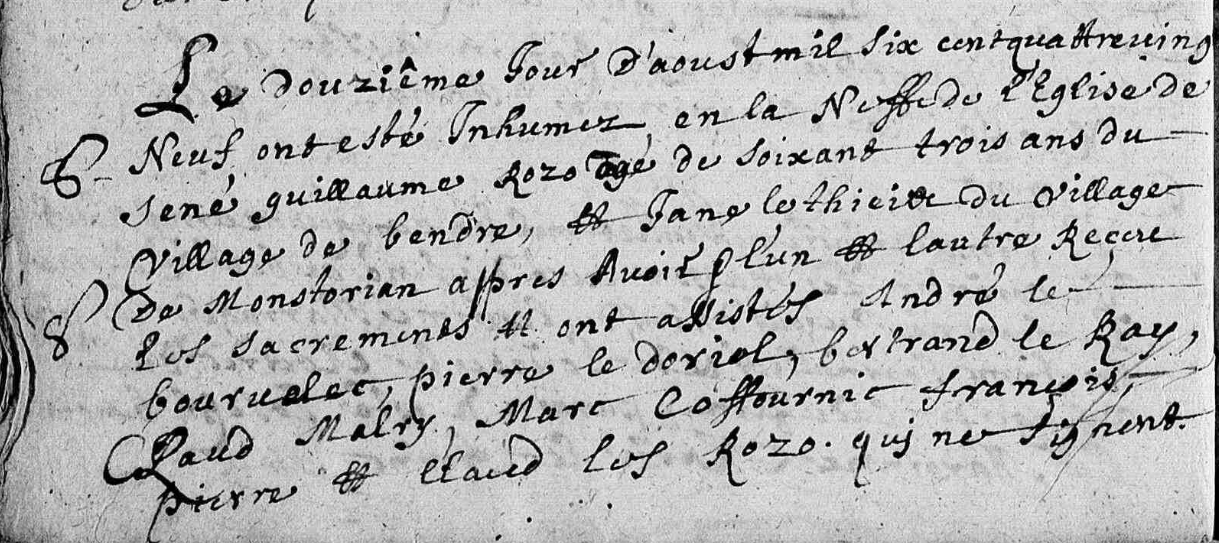 Le douziême Jour d'aoust mil six cent quattreuing
Neuf ont esté Inhumez en la Neffe de l'Eglise de
sené guillaume Rozo agé de soixant trois ans du
Village de bendre, et Jane le thieic du Village
de Monstorian appres Avoir l'un et lautre Reçeu
les sacrements et ont assistés André le
bouruelec, pierre le doriol, bertrand le Ray,
Claud Malry, Marc Coffournic françois,
pierre et Claud les Rozo. qui ne signent.